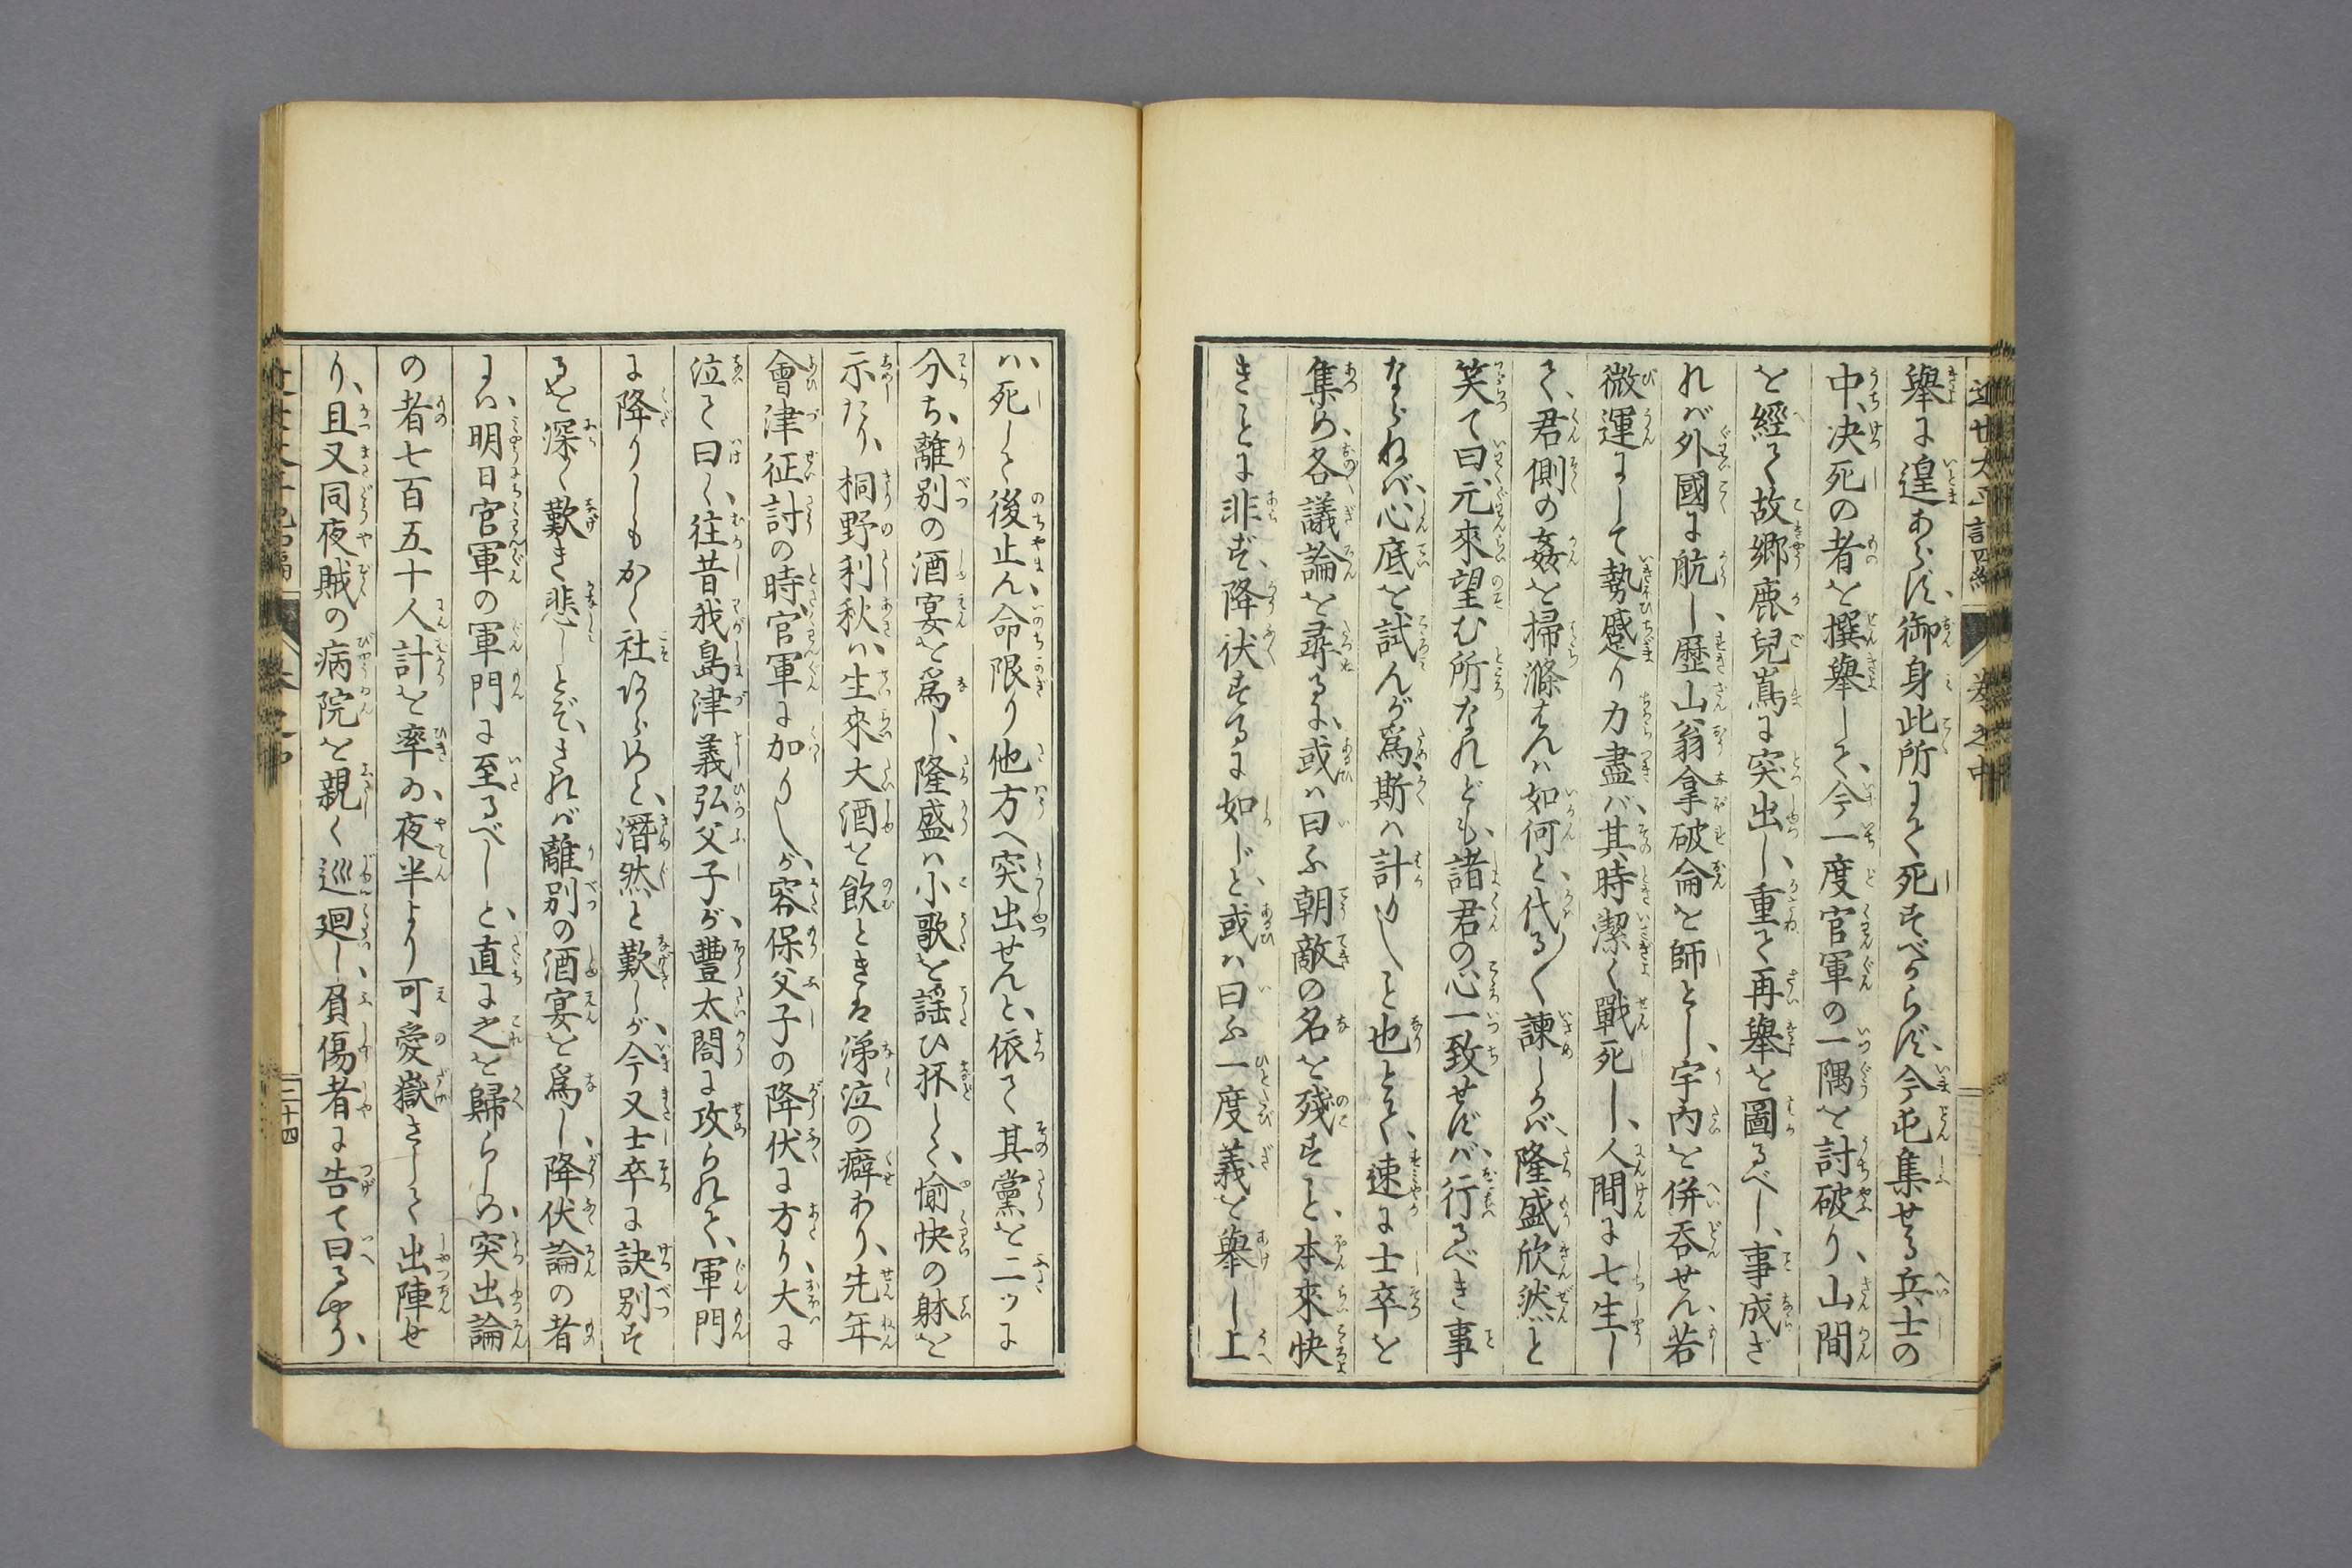 近世太平記四編 巻之中
擧に遑あらず、御身此所にて死すべからず、今屯集せる兵士の
中、决死の者を撰擧して、今一度官軍の一隅を討破り、山間
を經て故郷鹿兒嶌に突出し、重て再擧を圖るべし、事成ざ
れバ外國に航し、歴山翁拿破侖を師とし、宇内を併呑せん、若
微運にして勢蹙り力盡バ、其時潔く戰死し、人間に七生し
て、君側の姦を掃滌せんハ如何と、代る〱諫しかバ、隆盛欣然と
笑て曰、元來望む所なれども、諸君の心一致せずバ、行るべき事
ならねバ、心底を試んが爲、斯ハ計りしと也とて、速に士卒を
集め、各議論を尋るに、或ハ曰ふ朝敵の名を残すこと、本來快
きことに非ず、降伏するに如じと、或ハ曰ふ一度義を擧し上
ハ、死して後止ん、命限り他方へ突出せんと、依て其黨を二ツに
分ち、離別の酒宴を爲し、隆盛ハ小歌を謡ひ抔して、愉快の躰を
示たり、桐野利秋ハ、生來大酒を飲ときは涕泣の癖あり、先年
會津征討の時、官軍に加りしが、容保父子の降伏に方り、大に
泣て曰く、往昔我島津義弘父子が、豐太閤に攻られて、軍門
に降りしもかく社ありめと、潛然と歎しが、今又士卒に訣別す
るを深く歎き悲しとぞ、されバ離別の酒宴を爲し、降伏論の者
にハ、明日官軍の軍門に至るべしと、直に之を歸らしめ、突出論
の者七百五十人計を率ゐ、夜半より可愛嶽さして出陣せ
り、且又同夜賊の病院を親く巡廻し、負傷者に告て曰るやう、
二十四